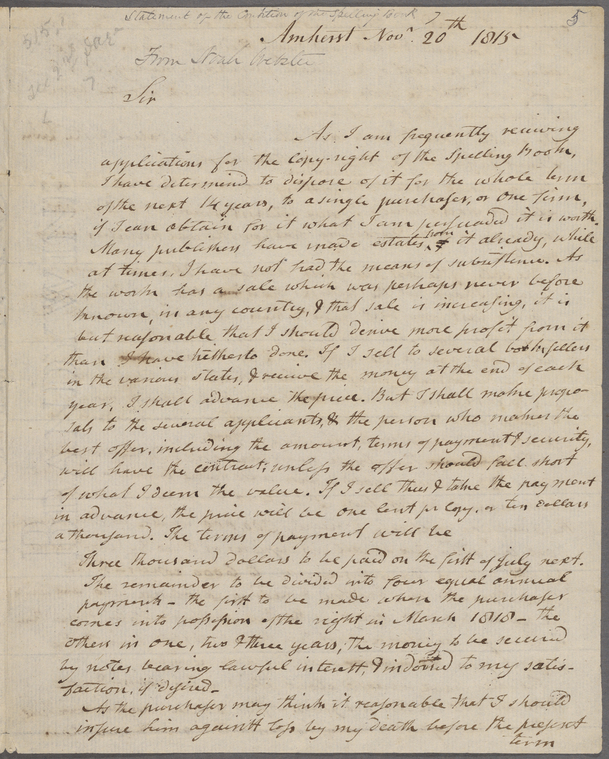 Statement of the Condition of the Spelling Book
5
Amherst Novr. 20th 1815
From Noah Webster
Sir
As I am frequently receiving
applications for the Copy-right of the Spelling Book,
I have determind to dispose of it for the whole term
of the next 14 years, to a single purchaser, or one firm,
if I can obtain for it what I am persuaded it is worth.
Many publishers have made estates from it already, while
at times, I have not had the means of subsistence. As
the work has a sale which was perhaps never before
known, in any country, & that sale is increasing, it is
but reasonable that I should derive more profit from it
than I have hitherto done. If I sell to several booksellers
in the various States, & receive the money at the end of each
year, I shall advance the price. But I shall make propo-
sals to the several applicants, & the person who makes the
best offer, including the amount, terms of payment & security,
will have the contract; unless the offer should fall short
of what I deem the value. If I sell thus & take the payment
in advance, the price will be one Cent pr Copy, or ten dollars
a thousand. The terms of payment will be
Three thousand dollars to be paid on the first of July next.
The remainder to be divided into four equal annual
payments - the first to be made when the purchaser
comes into possession of the right in March 1818 - the
others in one, two & three years, the money to be secured
by notes bearing lawful interest, & indorsed to my satis-
faction, if desired -
As the purchaser may think it reasonable that I should
insure him against loss by my death before the present
term